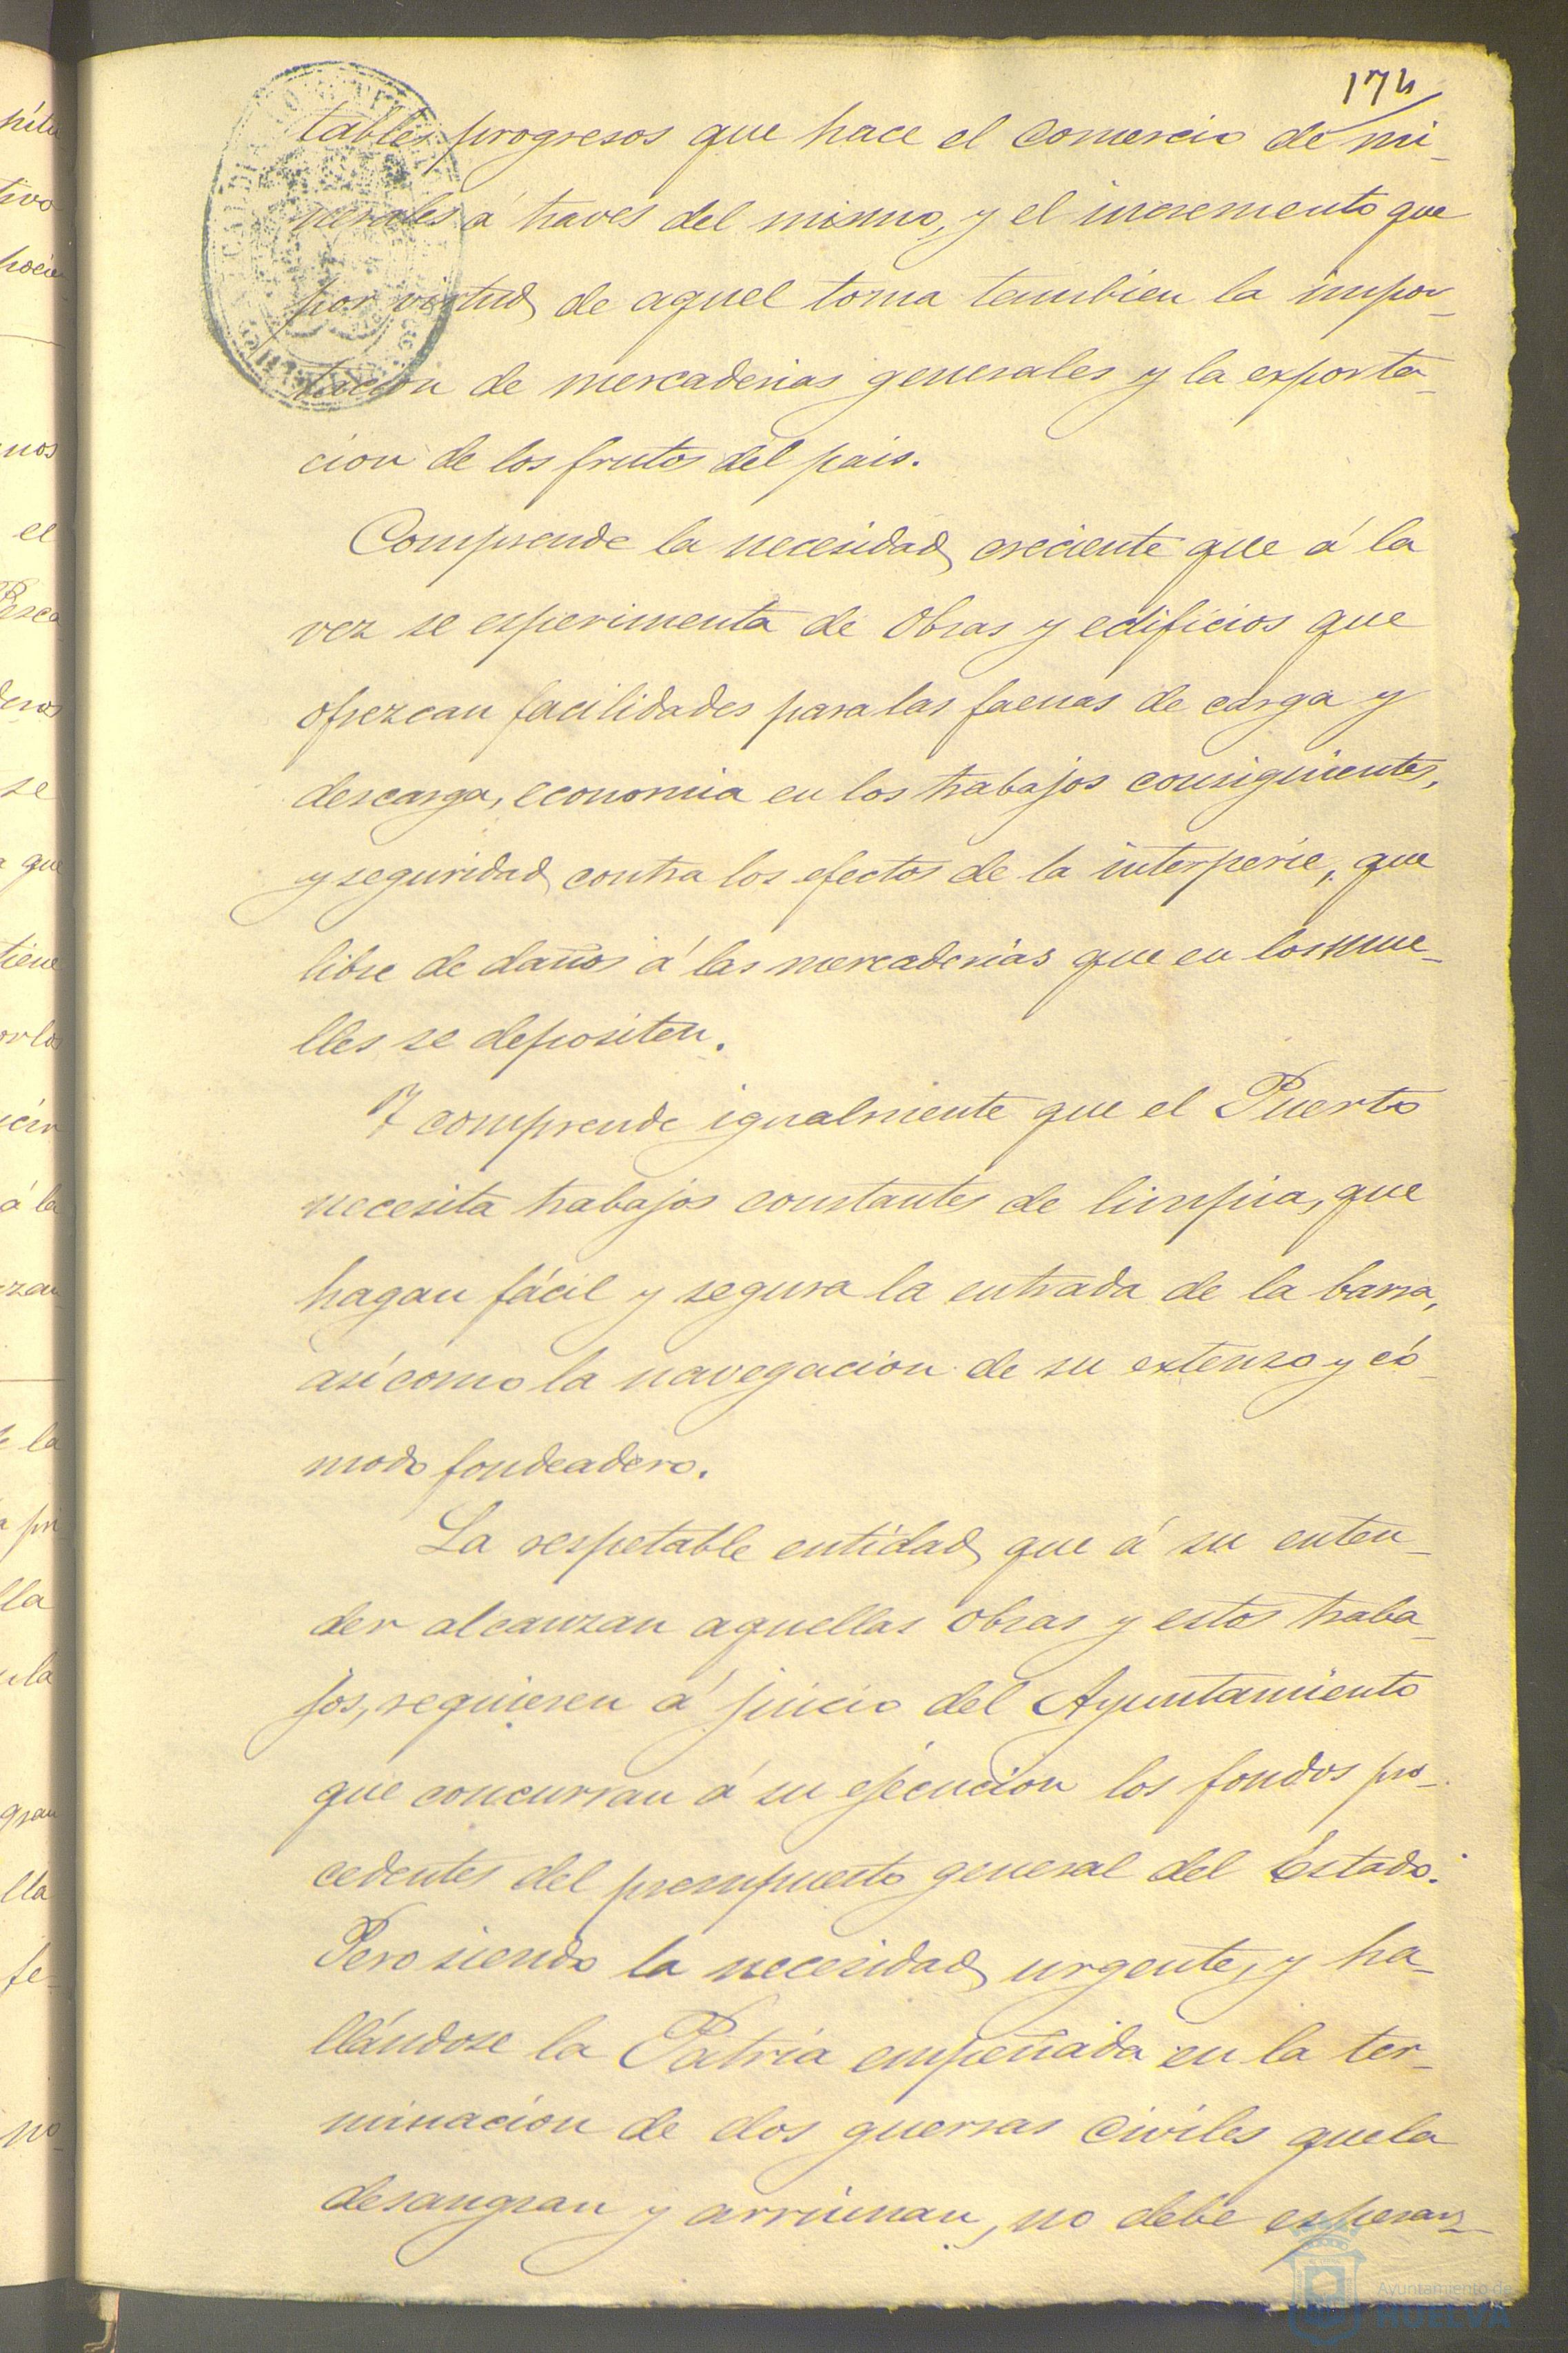 174
tables progresos que hace el comercio de mi-
nerales á traves del mismo, y el incremento que
por virtud de aquel toma tambien la impor-
tacion de mercaderias generales y la exporta-
cion de los frutos del pais.
Comprende la necesidad creciente que á la
vez se esperimenta de obras y edificios que
ofrezcan facilidades para las faenas de carga y
descarga, economia en los trabajos consiguientes,
y seguridad contra los efectos de la interperie, que
libre de daños á las mercaderias que en los mue-
lles se depositen.
Y comprende igualmente que el Puerto
necesita trabajos constantes de limpia, que
hagan fácil y segura la entrada de la barra,
asi como la navegacion de su extenso y có-
modo fondeadero.
La respetable entidad que á su enten-
der alcanzan aquellas obras y estos traba-
jos, requieren á juicio del Ayuntamiento
que concurran á su ejecucion los fondos pro-
cedentes del presupuesto general del Estado.
Pero siendo la necesidad urgente, y ha-
llándose la Patria empeñada en la ter-
minacion de dos guerras civiles que la
desangran y arruinan, no debe esperar-
Ayuntamiento de
HUELVA